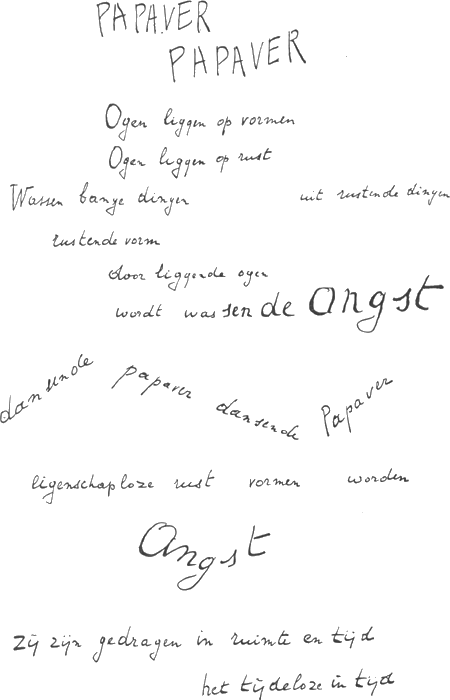 PAPAVER
PAPAVER
Ogen liggen op vormen
Ogen liggen op rust
Wassen bange dingen uit rustende dingen
rustende vorm
door liggende ogen
wordt wassende angst
dansende papaver dansende Papaver
eigenschaploze rust vormen worden
Angst
Zij zijn gedragen in ruimte en tijd
het tijdeloze in tijd